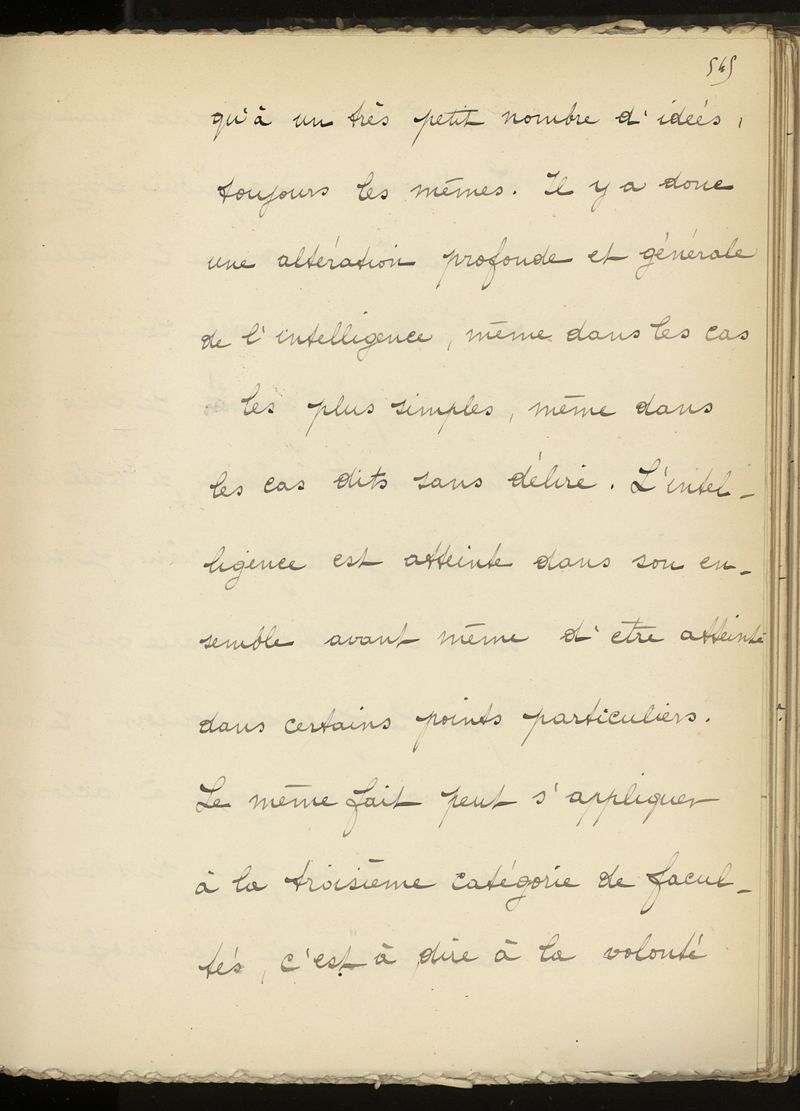 545
qu'à un très petit nombre d'idées,
toujours les mêmes. Il y a donc
une altération profonde et générale
de l'intelligence, même dans les cas
les plus simples, même dans
les cas dits sans délire. L'intel-
ligence est atteinte dans son en-
semble avant même d'etre atteinte
dans certains points particuliers.
Le même fait peut s'appliquer
à la troisième catégorie de facul-
tés, c'est à dire à la volonté